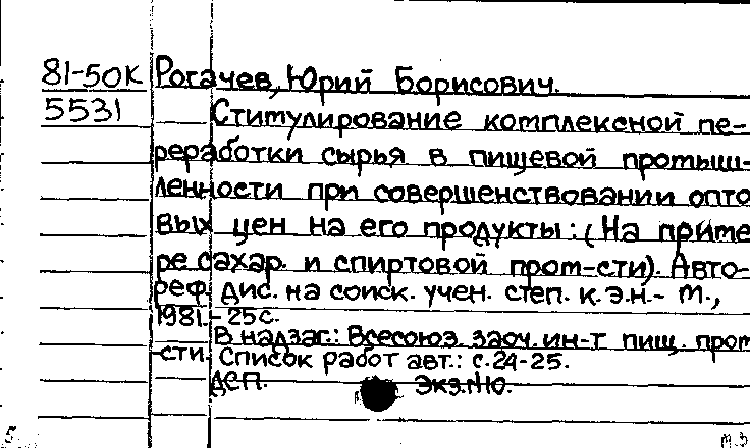 81-50К Рогачев, Юрий Борисович.
5531 Ститулирование комплексной пе-
реработки сырья в пищевой промыш-
ленности при совершенствовании опто
вых цен на его продукты: (На приме
ре сахар. и спиртовой пром-сти). Авто-
реф. дис. на соиск. учен. степ. к.э.н.- М.,
1981.- 25с.
В надзаг.: Всесоюз. заоч. ин-т пищ. пром
-сти. Список работ авт.: с.24-25.
ДСП. Экз.№10.